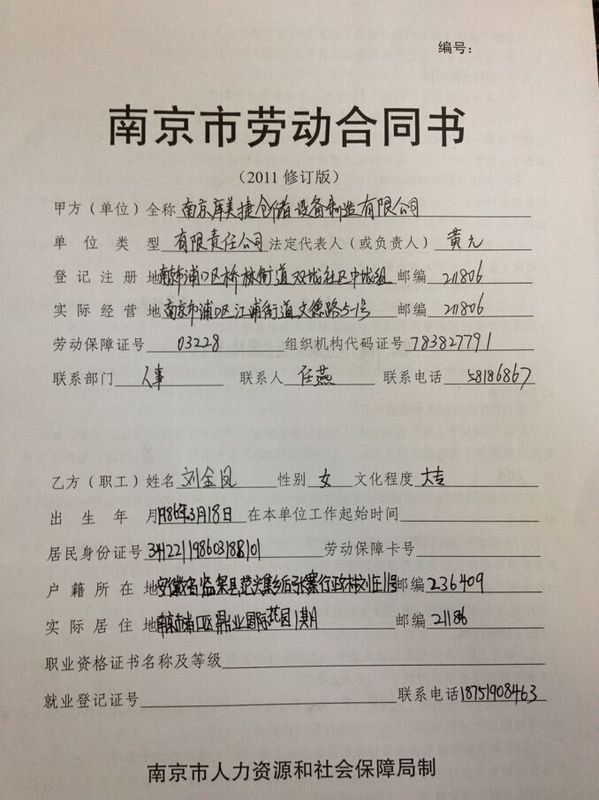 编号：
南京市劳动合同书
（2011 修订版）
甲方（单位）全称 南京库美捷仓储设备制造有限公司
单位类型 有限责任公司 法定代表人（或负责人） 黄九
登记注册地 南京市浦口区桥林街道双城社区中城组 邮编 211806
实际经营地 南京市浦口区江浦街道文德路5-1号 邮编 211806
劳动保障证号 03228 组织机构代码证号 783827791
联系部门 人事 联系人 任燕 联系电话 58186867
乙方（职工）姓名 刘金凤 性别 女 文化程度 大专
出生年月 1986年3月18日 在本单位工作起始时间
居民身份证号 劳动保障卡号
户籍所在地 安徽省临泉县 行政村刘庄 邮编 236409
实际居住地 南京市浦口区 国际花园1期 邮编 21186
职业资格证书名称及等级
就业登记证号 联系电话 18751908463
南京市人力资源和社会保障局制